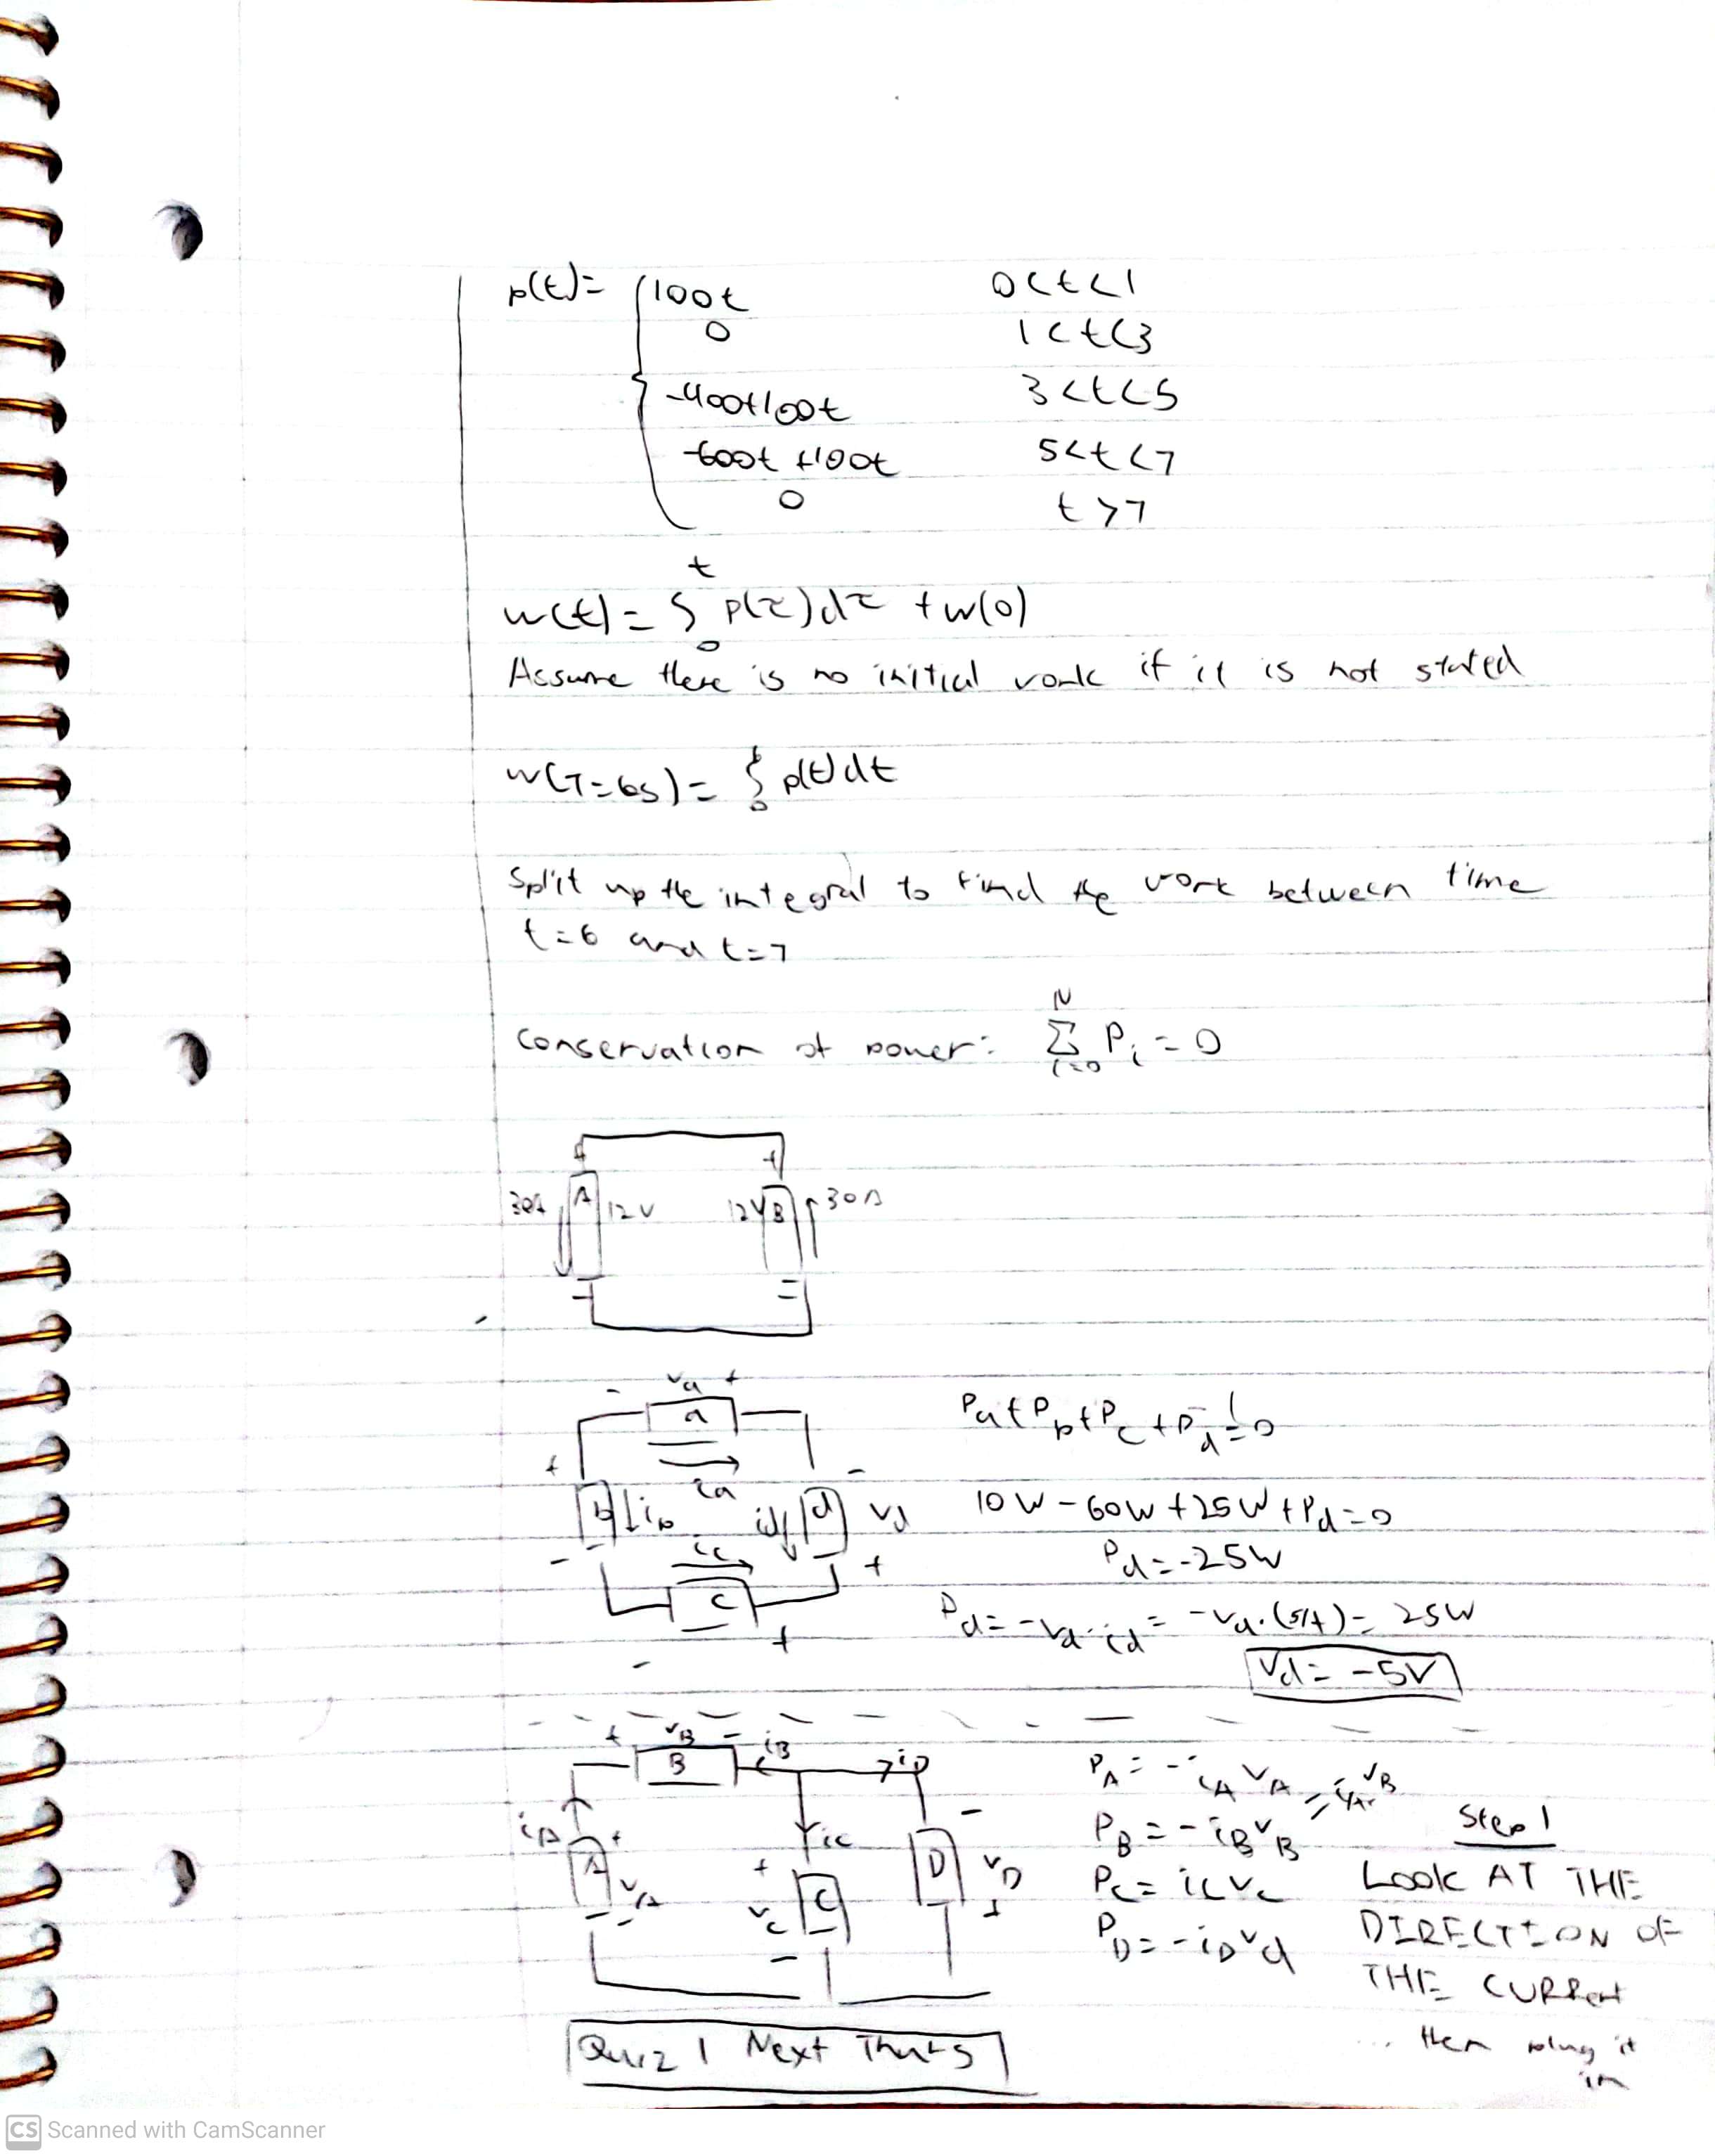 p(t)= { 100t 0<t<1
0 1<t<3
-400+100t 3<t<5
-600t +100t 5<t<7
0 t>7
w(t) = ∫₀ᵗ p(τ)dτ + w(0)
Assume there is no initial work if it is not stated
w(T=6s) = ∫₀ᵗ p(t)dt
Split up the integral to find the work between time
t=6 and t=7
Conservation of power: Σᵢ₌₀ᴺ Pᵢ = 0
+ +
30A A 12V 12V B 30A
- -
- va +
a
ia
+ -
b ib id d vd
- ic +
c
- +
Pa+Pb+Pc+Pd=0
10W-60W+25W+Pd=0
Pd=-25W
Pd=-vd·id = -vd·(5A) = 25W
Vd = -5V
+ vB - iB iD
B
iA + ic -
A vA + vc C D vD
- - +
PA = -iA vA = iA vB
PB = -iB vB
PC = iC vC
PD = -iD vd
Step 1
LOOK AT THE
DIRECTION OF
THE CURRENT
... then plug it
in
Quiz 1 Next Thurs
CS Scanned with CamScanner